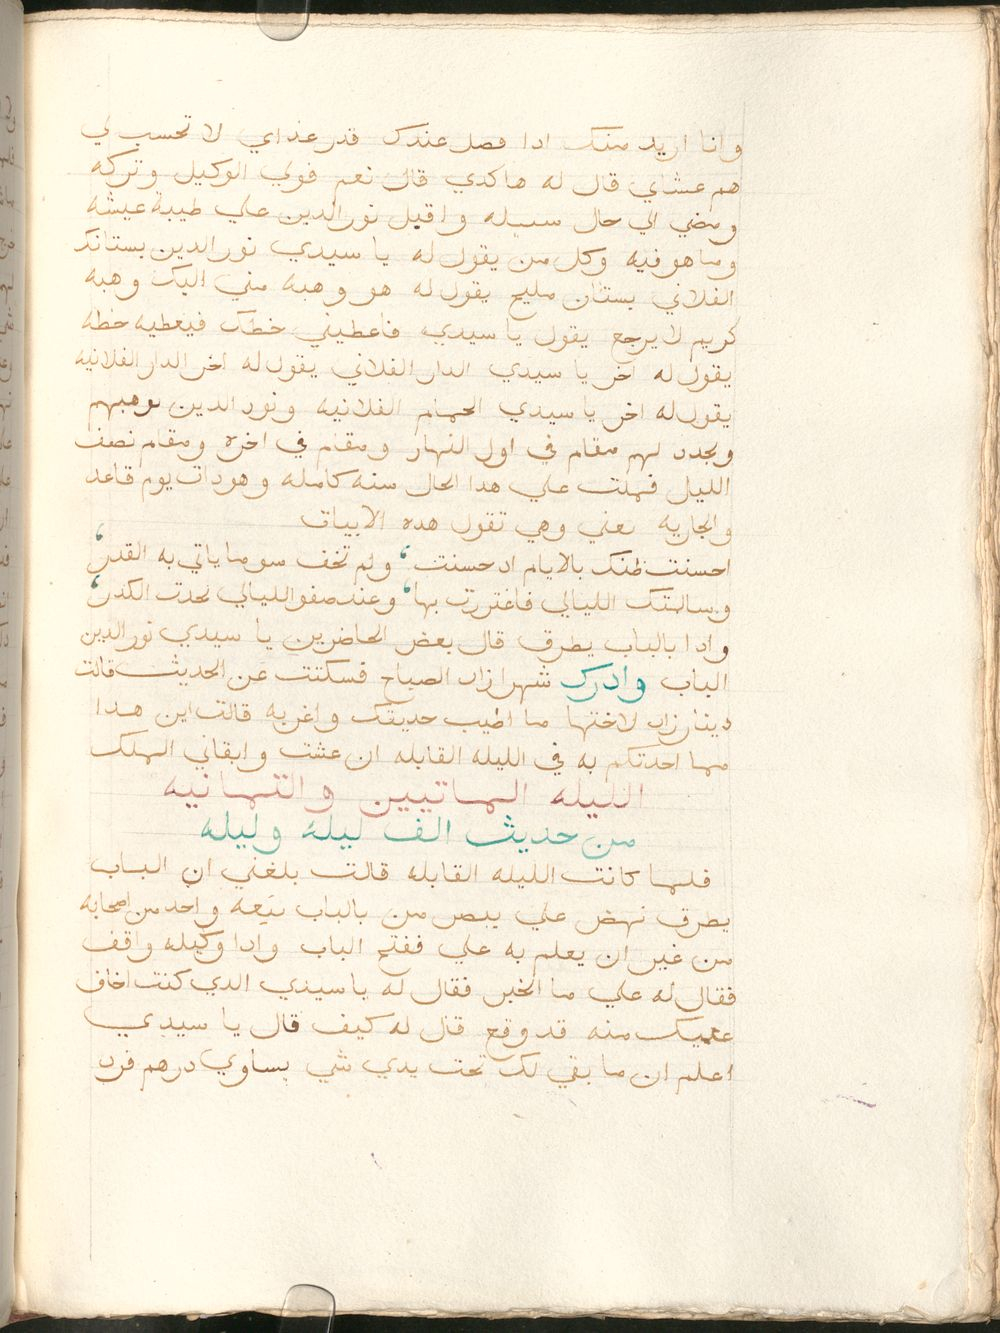 وانا اريد منك ادا فصل عندك قدر غداي لا تحسب لي
هم عشاي قال له هاكدي قال نعم فولي الوكيل وتركه
ومضي الي حال سبيله واقبل نور الدين علي طيبة عيشه
وما هو فيه وكل من يقول له يا سيدي نور الدين بستانك
الفلاني بستان مليح يقول له هو وهبه مني اليك وهبه
كريم لا يرجع يقول يا سيدي فاعطيني خطك فيعطيه خطه
يقول له اخر يا سيدي الدار الفلاني يقول له اخر الدار الفلانيه
يقول له اخر يا سيدي الحمام الفلانيه ونور الدين يوهبهم
ويجدد لهم مقام في اول النهار ومقام في اخره ومقام نصف
الليل فمكت علي هدا الحال سنه كامله وهو دات يوم قاعد
والجاريه تغني وهي تقول هده الابيات
احسنت ظنك بالايام اد حسنت ، ولم تخف سو ما ياتي به القدر ،
وسالمتك الليالي فاغتررت بها ، وعند صفو الليالي تحدت الكدر ،
وادا بالباب يطرق قال بعض الحاضرين يا سيدي نور الدين
الباب وادرك شهرازاد الصباح فسكتت عن الحديث قالت
دينارزاد لاختها ما اطيب حديتك واغربه قالت اين هدا
مما احدتكم به في الليله القابله ان عشت وابقاني الملك
الليله الماتيين والتمانيه
من حديث الف ليلة وليله
فلما كانت الليله القابله قالت بلغني ان الباب
يطرق نهض علي يبصر من بالباب تبعه واحد من اصحابه
من غير ان يعلم به علي ففتح الباب وادا وكيله واقف
فقال له علي ما الخبر فقال له يا سيدي الدي كنت اخاف
عليك منه قد وقع قال له كيف قال يا سيدي
اعلم ان ما بقي لك تحت يدي شي يساوي درهم فرد